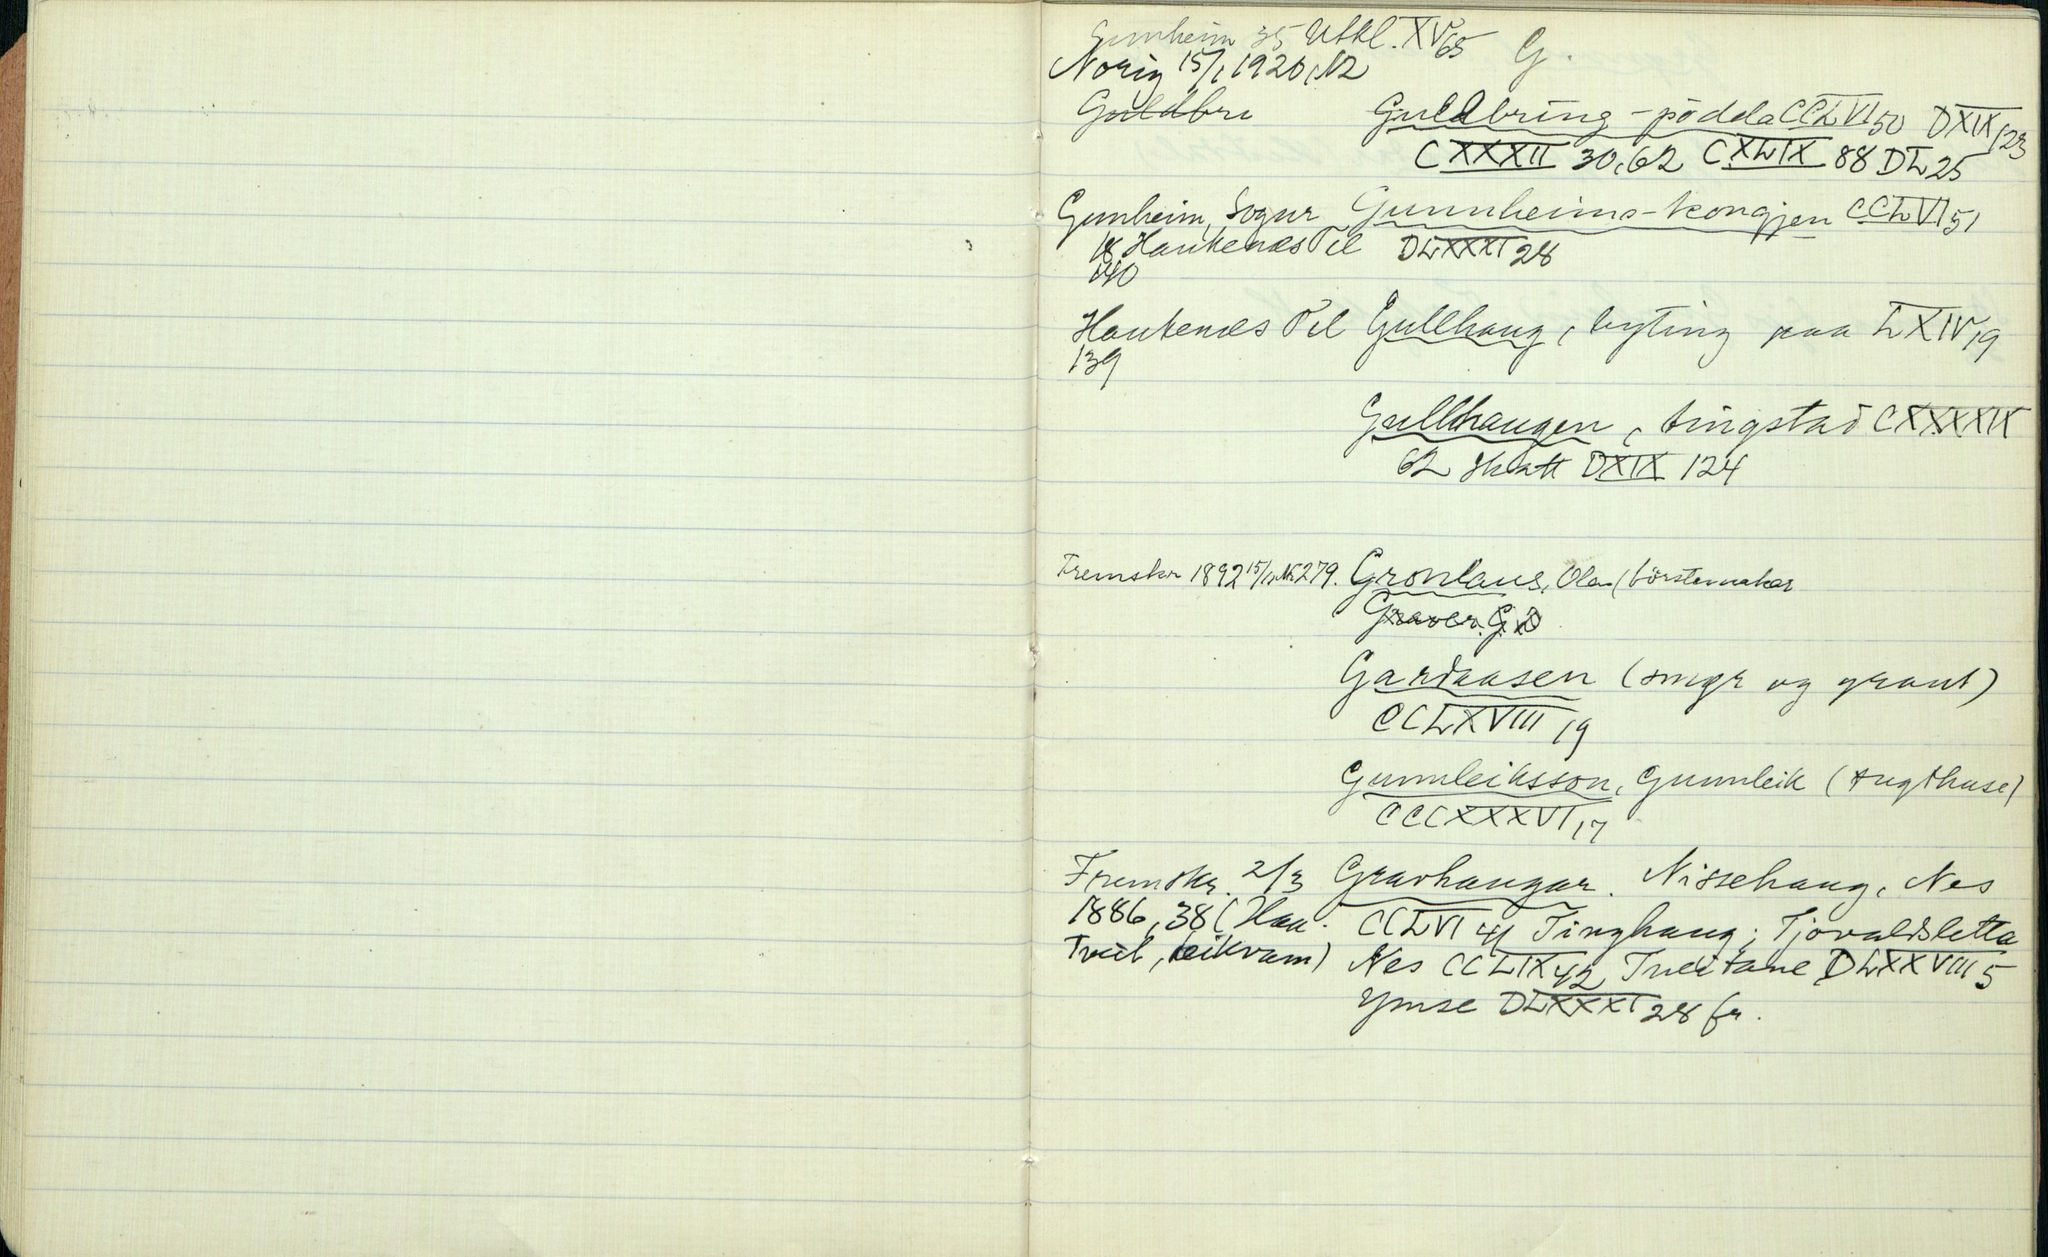 Gunheim 35 Utkl. XV 65 G.
Norig 15/1 1920, N2
Guldbru Guldbring-pödda CCLVI 50 DXIX 123
CXXXII 30, 62 CXLIX 88 DL 25
Gunheim, Sogur Gunnheims-kongjen CCLVI 51
18 Haukenæs Tel DLXXXI 28
140
Haukenæs Tel Gullhaug, byting paa LXIV 19
139
Gullhaugen, tingstad CXXXXIX
62 skatt DXIX 124
Fremskr 1892 15/1 N 279. Grønlaus, Olav (börstemakar
Graver. G. D
Gardaasen (smør og graut)
CCLXVIII 19
Gunnleiksson, Gunnleik (tugthuse)
CCCXXXVI 17
Fremskr. 2/3 Gravhaugar. Nissehaug, Nes
1886, 38 (Hau- CCLVI 41 Tinghaug; Tjovaldsletta
tveit, Leikvam) Nes CCLIX 42 Tveitane DLXXVIII 5
Ymse DLXXXI 28 fr.